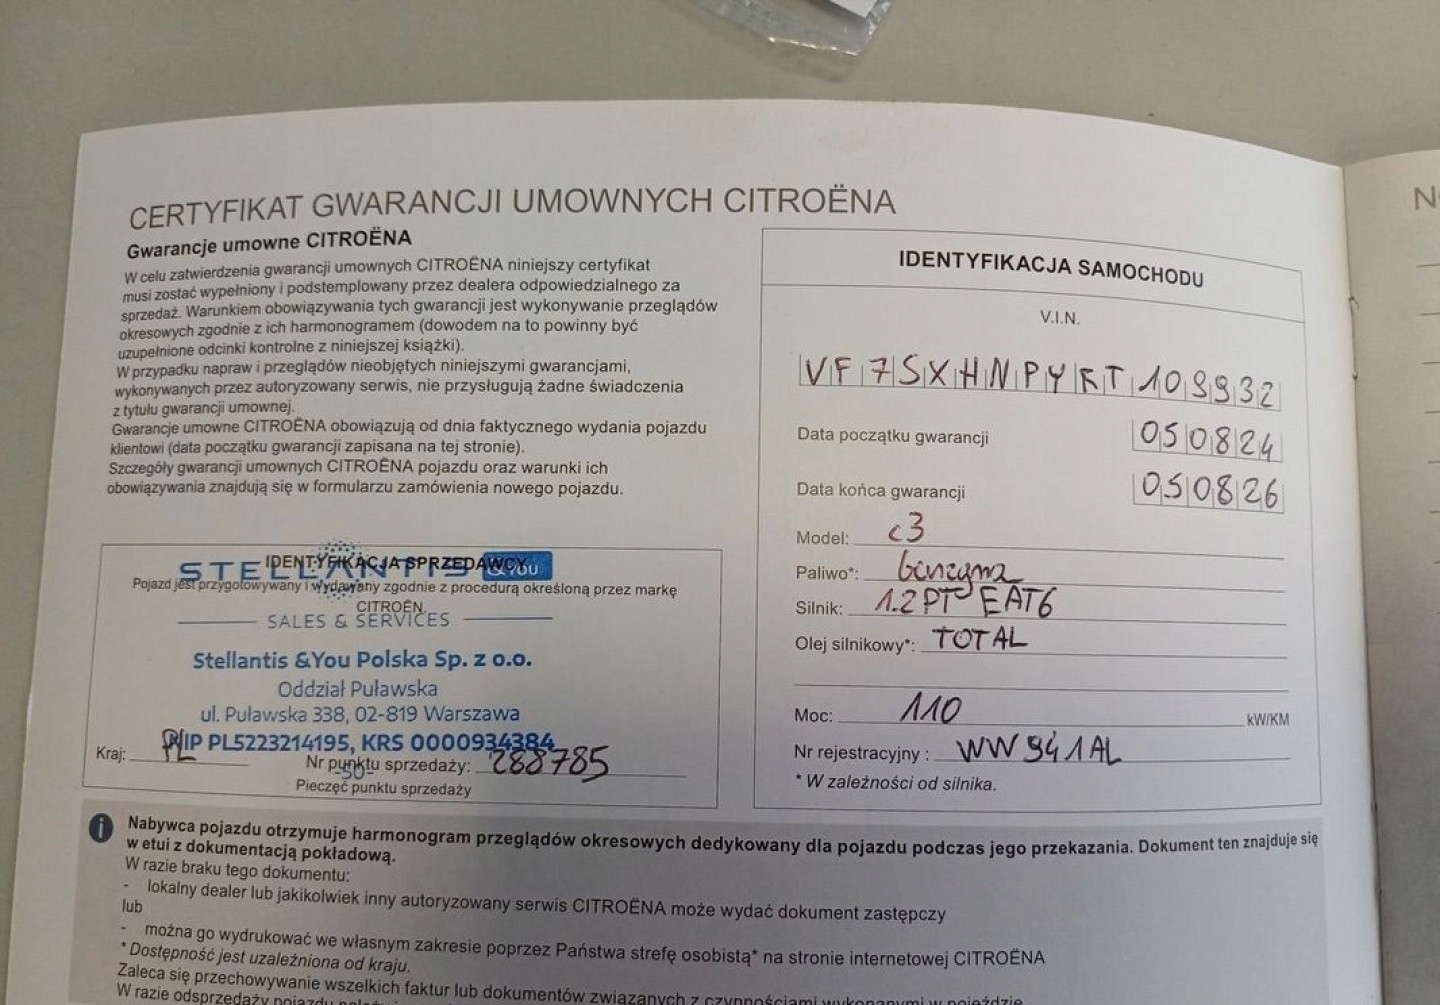 CERTYFIKAT GWARANCJI UMOWNYCH CITROËNA
Gwarancje umowne CITROËNA
W celu zatwierdzenia gwarancji umownych CITROËNA niniejszy certyfikat
musi zostać wypełniony i podstemplowany przez dealera odpowiedzialnego za
sprzedaż. Warunkiem obowiązywania tych gwarancji jest wykonywanie przeglądów
okresowych zgodnie z ich harmonogramem (dowodem na to powinny być
uzupełnione odcinki kontrolne z niniejszej książki).
W przypadku napraw i przeglądów nieobjętych niniejszymi gwarancjami,
wykonywanych przez autoryzowany serwis, nie przysługują żadne świadczenia
z tytułu gwarancji umownej.
Gwarancje umowne CITROËNA obowiązują od dnia faktycznego wydania pojazdu
klientowi (data początku gwarancji zapisana na tej stronie).
Szczegóły gwarancji umownych CITROËNA pojazdu oraz warunki ich
obowiązywania znajdują się w formularzu zamówienia nowego pojazdu.
IDENTYFIKACJA SPRZEDAWCY
STELLANTIS &YOU
Pojazd jest przygotowywany i wydawany zgodnie z procedurą określoną przez markę
CITROËN
SALES & SERVICES
Stellantis &You Polska Sp. z o.o.
Oddział Puławska
ul. Puławska 338, 02-819 Warszawa
NIP PL5223214195, KRS 0000934384
Kraj: PL Nr punktu sprzedaży: 288785
-50-
Pieczęć punktu sprzedaży
IDENTYFIKACJA SAMOCHODU
V.I.N.
VF7SXHNPYRT109932
Data początku gwarancji 050824
Data końca gwarancji 050826
Model: c3
Paliwo*: benzyna
Silnik: 1.2 PT EAT6
Olej silnikowy*: TOTAL
Moc: 110 kW/KM
Nr rejestracyjny : WW941AL
* W zależności od silnika.
Nabywca pojazdu otrzymuje harmonogram przeglądów okresowych dedykowany dla pojazdu podczas jego przekazania. Dokument ten znajduje się
w etui z dokumentacją pokładową.
W razie braku tego dokumentu:
- lokalny dealer lub jakikolwiek inny autoryzowany serwis CITROËNA może wydać dokument zastępczy
lub
- można go wydrukować we własnym zakresie poprzez Państwa strefę osobistą* na stronie internetowej CITROËNA
* Dostępność jest uzależniona od kraju.
Zaleca się przechowywanie wszelkich faktur lub dokumentów związanych z czynnościami wykonywanymi w pojeździe.
W razie odsprzedaży pojazdu